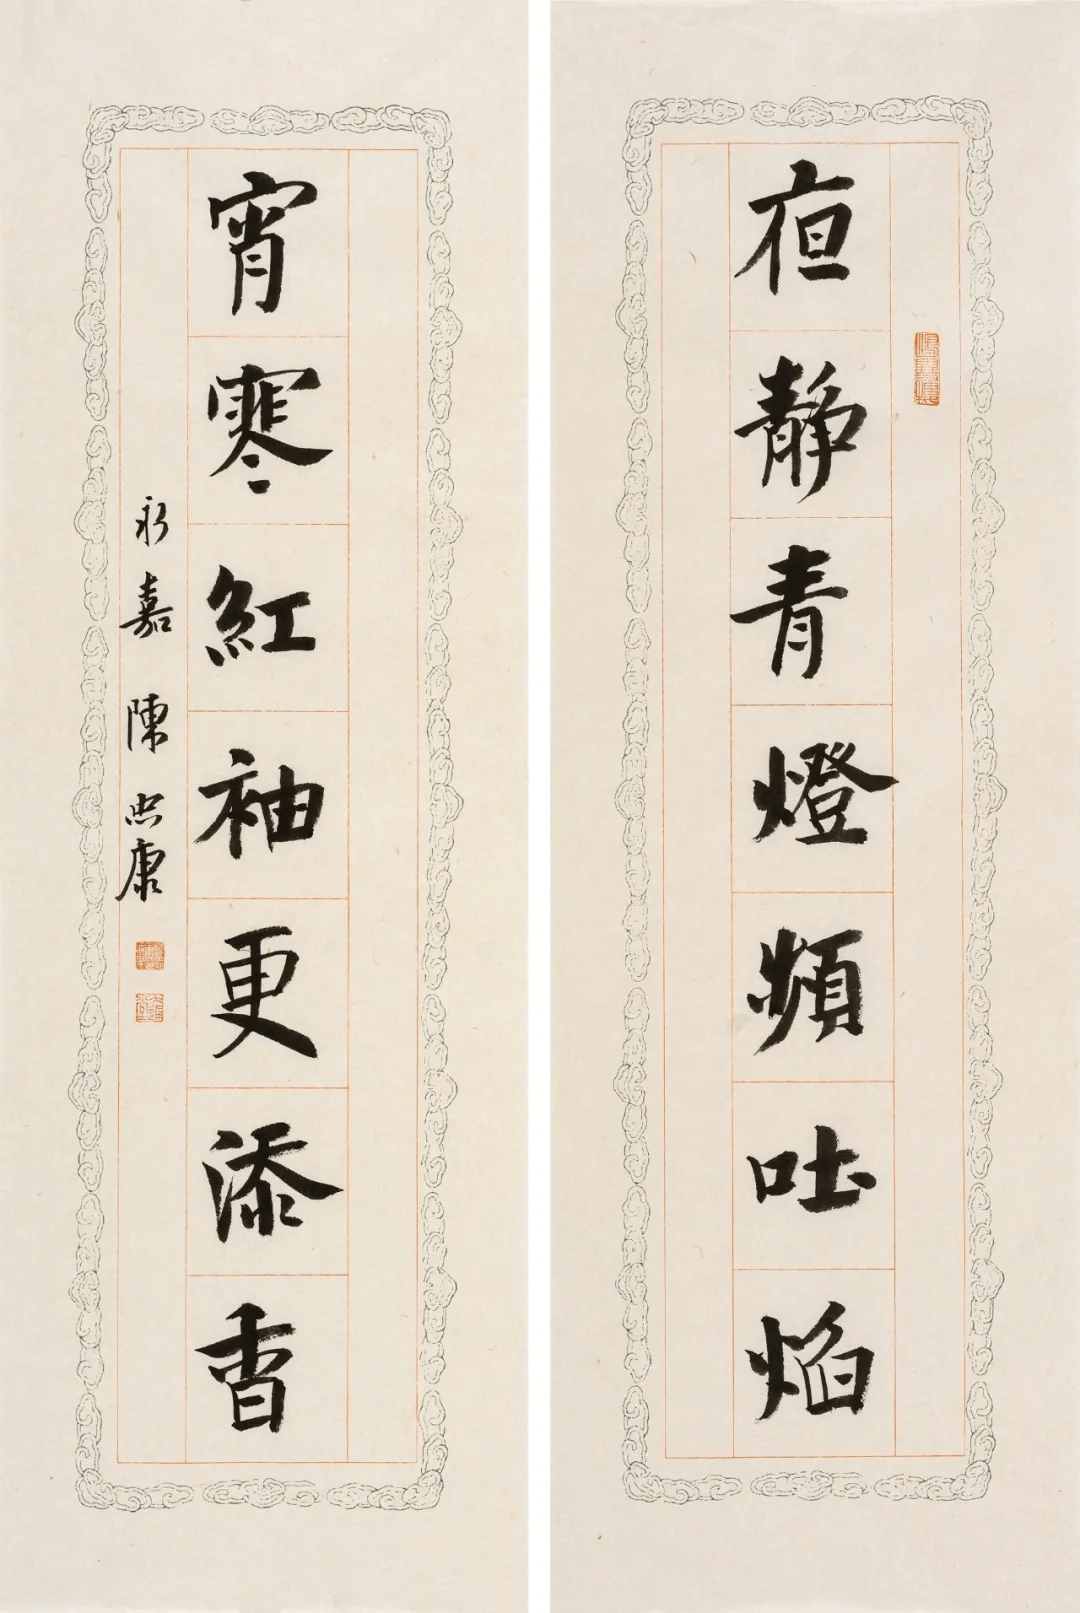 夜靜青燈頻吐焰
宵寒紅袖更添香
永嘉陳忠康